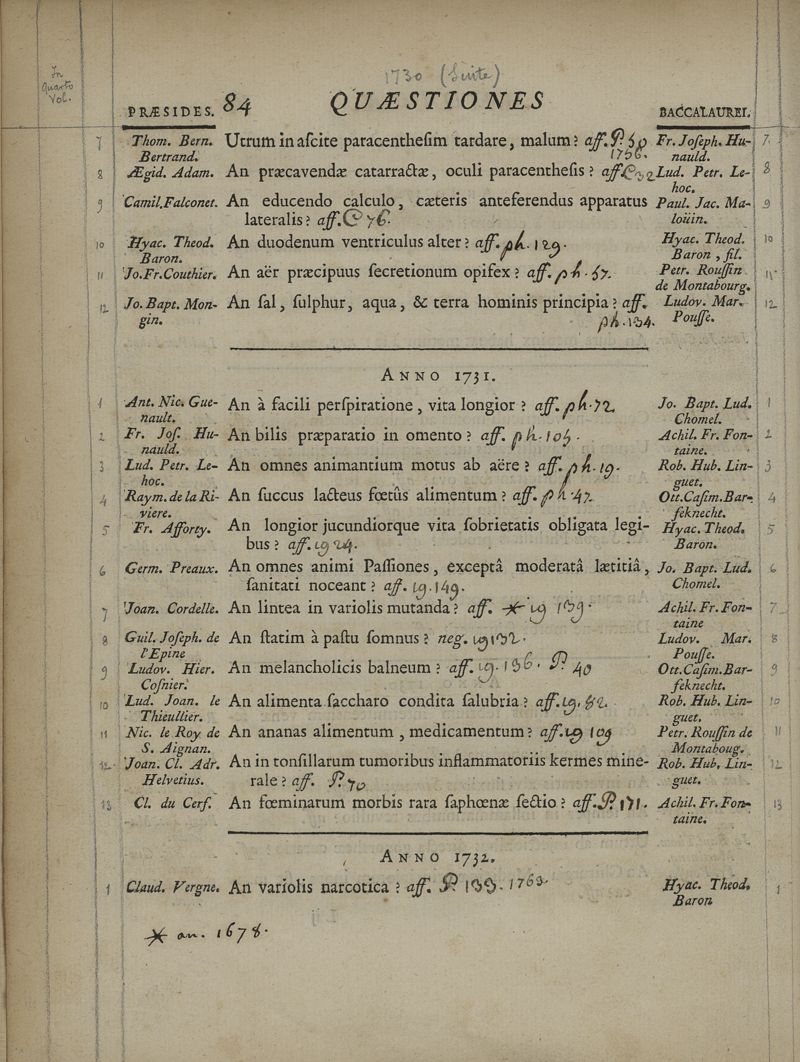 1730 (Suite)
In quarto Vol.
PRÆSIDES. 84 QUÆSTIONES BACCALAUREI.
7 Thom. Bern. Utrum in aſcite paracentheſim tardare, malum? aff. P. 50 Fr. Joſeph. Hu- 7
Bertrand. 1756. nauld.
8 Ægid. Adam. An præcavendæ catarractæ, oculi paracentheſis? aff. Lud. Petr. Le- 8
hoc.
9 Camil. Falconet. An educendo calculo, cæteris anteferendus apparatus Paul. Jac. Ma- 9
lateralis? aff. C 76. loüin.
10 Hyac. Theod. An duodenum ventriculus alter? aff. ph. 129. Hyac. Theod. 10
Baron. Baron, fil.
11 Jo. Fr. Couthier. An aër præcipuus ſecretionum opifex? aff. ph. 67. Petr. Rouſſin 11
de Montabourg.
12 Jo. Bapt. Mon- An ſal, ſulphur, aqua, & terra hominis principia? aff. Ludov. Mar. 12
gin. ph. 134. Pouſſe.
ANNO 1731.
1 Ant. Nic. Gue- An à facili perſpiratione, vita longior? aff. ph. 72 Jo. Bapt. Lud. 1
nault. Chomel.
2 Fr. Joſ. Hu- An bilis præparatio in omento? aff. ph. 105. Achil. Fr. Fon- 2
nauld. taine.
3 Lud. Petr. Le- An omnes animantium motus ab aëre? aff. ph. 19. Rob. Hub. Lin- 3
hoc. guet.
4 Raym. de la Ri- An ſuccus lacteus fœtûs alimentum? aff. ph 47. Ott. Caſim. Bar- 4
viere. feknecht.
5 Fr. Afforty. An longior jucundiorque vita ſobrietatis obligata legi- Hyac. Theod. 5
bus? aff. 24. Baron.
6 Germ. Preaux. An omnes animi Paſſiones, exceptâ moderatâ lætitiâ, Jo. Bapt. Lud. 6
ſanitati noceant? aff. 149. Chomel.
7 Joan. Cordelle. An lintea in variolis mutanda? aff. Achil. Fr. Fon- 7
taine
8 Guil. Joſeph. de An ſtatim à paſtu ſomnus? neg. Ludov. Mar. 8
l'Epine Pouſſe.
9 Ludov. Hier. An melancholicis balneum? aff. 136. P. 40 Ott. Caſim. Bar- 9
Coſnier. feknecht.
10 Lud. Joan. le An alimenta ſaccharo condita ſalubria? aff. Rob. Hub. Lin- 10
Thieullier. guet.
11 Nic. le Roy de An ananas alimentum, medicamentum? aff. 109 Petr. Rouſſin de 11
S. Aignan. Montaboug.
12 Joan. Cl. Adr. An in tonſillarum tumoribus inflammatoriis kermes mine- Rob. Hub. Lin- 12
Helvetius. rale? aff. P. 70 guet.
13 Cl. du Cerf. An fœminarum morbis rara ſaphœnæ ſectio? aff. P. 171. Achil. Fr. Fon- 13
taine.
ANNO 1732.
1 Claud. Vergne. An variolis narcotica? aff. P 133. 1763. Hyac. Theod. 1
Baron
* an. 1678.